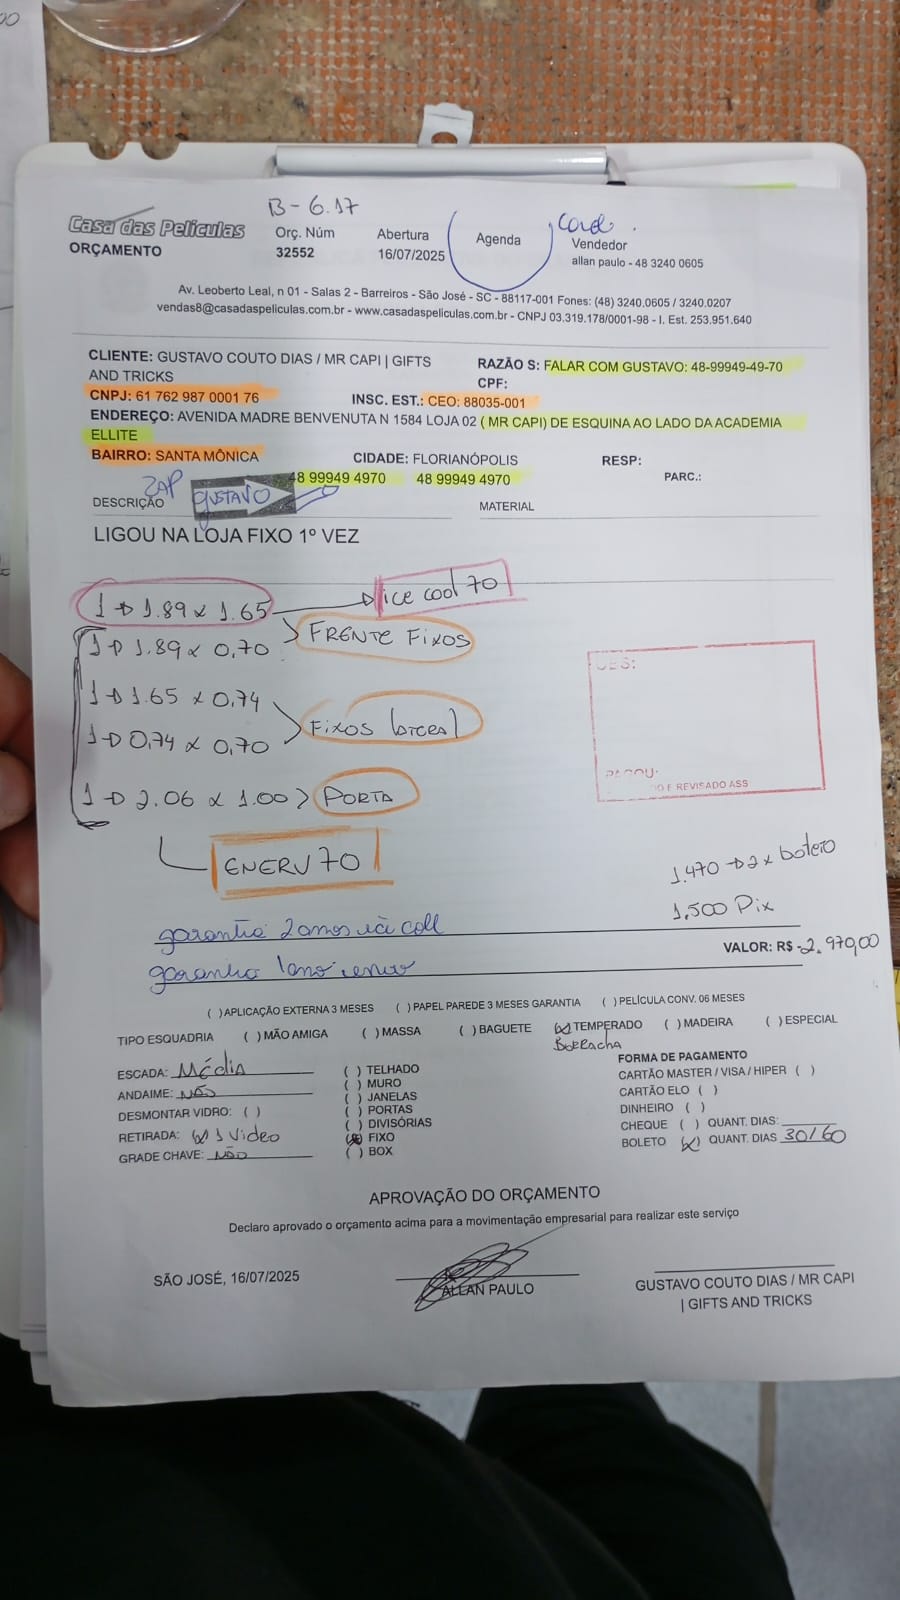 B - 6.17
Casa das Películas
ORÇAMENTO
Orç. Núm
32552
Abertura
16/07/2025
Agenda
Vendedor
allan paulo - 48 3240 0605
Av. Leoberto Leal, n 01 - Salas 2 - Barreiros - São José - SC - 88117-001 Fones: (48) 3240.0605 / 3240.0207
vendas8@casadaspeliculas.com.br - www.casadaspeliculas.com.br - CNPJ 03.319.178/0001-98 - I. Est. 253.951.640
CLIENTE: GUSTAVO COUTO DIAS / MR CAPI | GIFTS
AND TRICKS
RAZÃO S: FALAR COM GUSTAVO: 48-99949-49-70
CPF:
CNPJ: 61 762 987 0001 76
INSC. EST.: CEO: 88035-001
ENDEREÇO: AVENIDA MADRE BENVENUTA N 1584 LOJA 02 ( MR CAPI) DE ESQUINA AO LADO DA ACADEMIA
ELLITE
BAIRRO: SANTA MÔNICA
CIDADE: FLORIANÓPOLIS
RESP:
48 99949 4970 48 99949 4970
PARC.:
ZAP
GUSTAVO
DESCRIÇÃO
MATERIAL
LIGOU NA LOJA FIXO 1º VEZ
1 → 1.89 x 1.65 → ice cool 70
1 → 1.89 x 0,70 > FRENTE FIXOS
1 → 1.65 x 0,74
1 → 0,74 x 0,70 > FIXOS lateral
1 → 2.06 x 1.00 > PORTA
ENERV 70
OBS:
PAGOU:
O E REVISADO ASS
1.470 → 2x boleto
1,500 Pix
garantia 2 anos
garantia 1 ano
VALOR: R$ -2.970,00
( ) APLICAÇÃO EXTERNA 3 MESES ( ) PAPEL PAREDE 3 MESES GARANTIA ( ) PELÍCULA CONV. 06 MESES
TIPO ESQUADRIA ( ) MÃO AMIGA ( ) MASSA ( ) BAGUETE (x) TEMPERADO ( ) MADEIRA ( ) ESPECIAL
Borracha
ESCADA: Média
ANDAIME: NÃO
DESMONTAR VIDRO: ( )
RETIRADA: (x) 1 Video
GRADE CHAVE: NÃO
( ) TELHADO
( ) MURO
( ) JANELAS
( ) PORTAS
( ) DIVISÓRIAS
(x) FIXO
( ) BOX
FORMA DE PAGAMENTO
CARTÃO MASTER / VISA / HIPER ( )
CARTÃO ELO ( )
DINHEIRO ( )
CHEQUE ( ) QUANT. DIAS:
BOLETO (x) QUANT. DIAS 30/60
APROVAÇÃO DO ORÇAMENTO
Declaro aprovado o orçamento acima para a movimentação empresarial para realizar este serviço
SÃO JOSÉ, 16/07/2025
ALLAN PAULO
GUSTAVO COUTO DIAS / MR CAPI
| GIFTS AND TRICKS